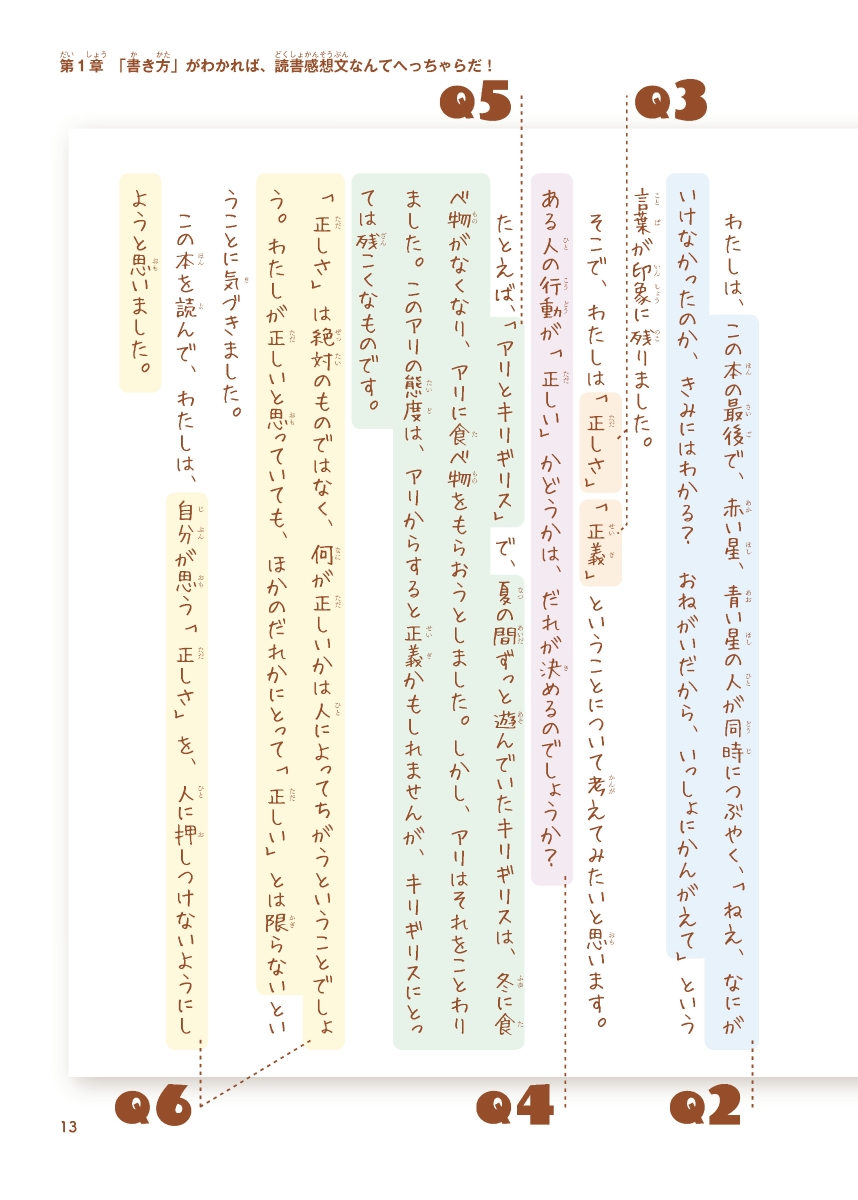 第1章 「書き方」がわかれば、読書感想文なんてへっちゃらだ！
Q5
Q3
わたしは、この本の最後で、赤い星、青い星の人が同時につぶやく、「ねえ、なにが
いけなかったのか、きみにはわかる？ おねがいだから、いっしょにかんがえて」という
言葉が印象に残りました。
そこで、わたしは「正しさ」「正義」ということについて考えてみたいと思います。
ある人の行動が「正しい」かどうかは、だれが決めるのでしょうか？
たとえば、「アリとキリギリス」で、夏の間ずっと遊んでいたキリギリスは、冬に食
べ物がなくなり、アリに食べ物をもらおうとしました。しかし、アリはそれをことわり
ました。このアリの態度は、アリからすると正義かもしれませんが、キリギリスにとっ
ては残こくなものです。
「正しさ」は絶対のものではなく、何が正しいかは人によってちがうということでしょ
う。わたしが正しいと思っていても、ほかのだれかにとって「正しい」とは限らないとい
うことに気づきました。
この本を読んで、わたしは、自分が思う「正しさ」を、人に押しつけないようにし
ようと思いました。
Q6
Q4
Q2
13